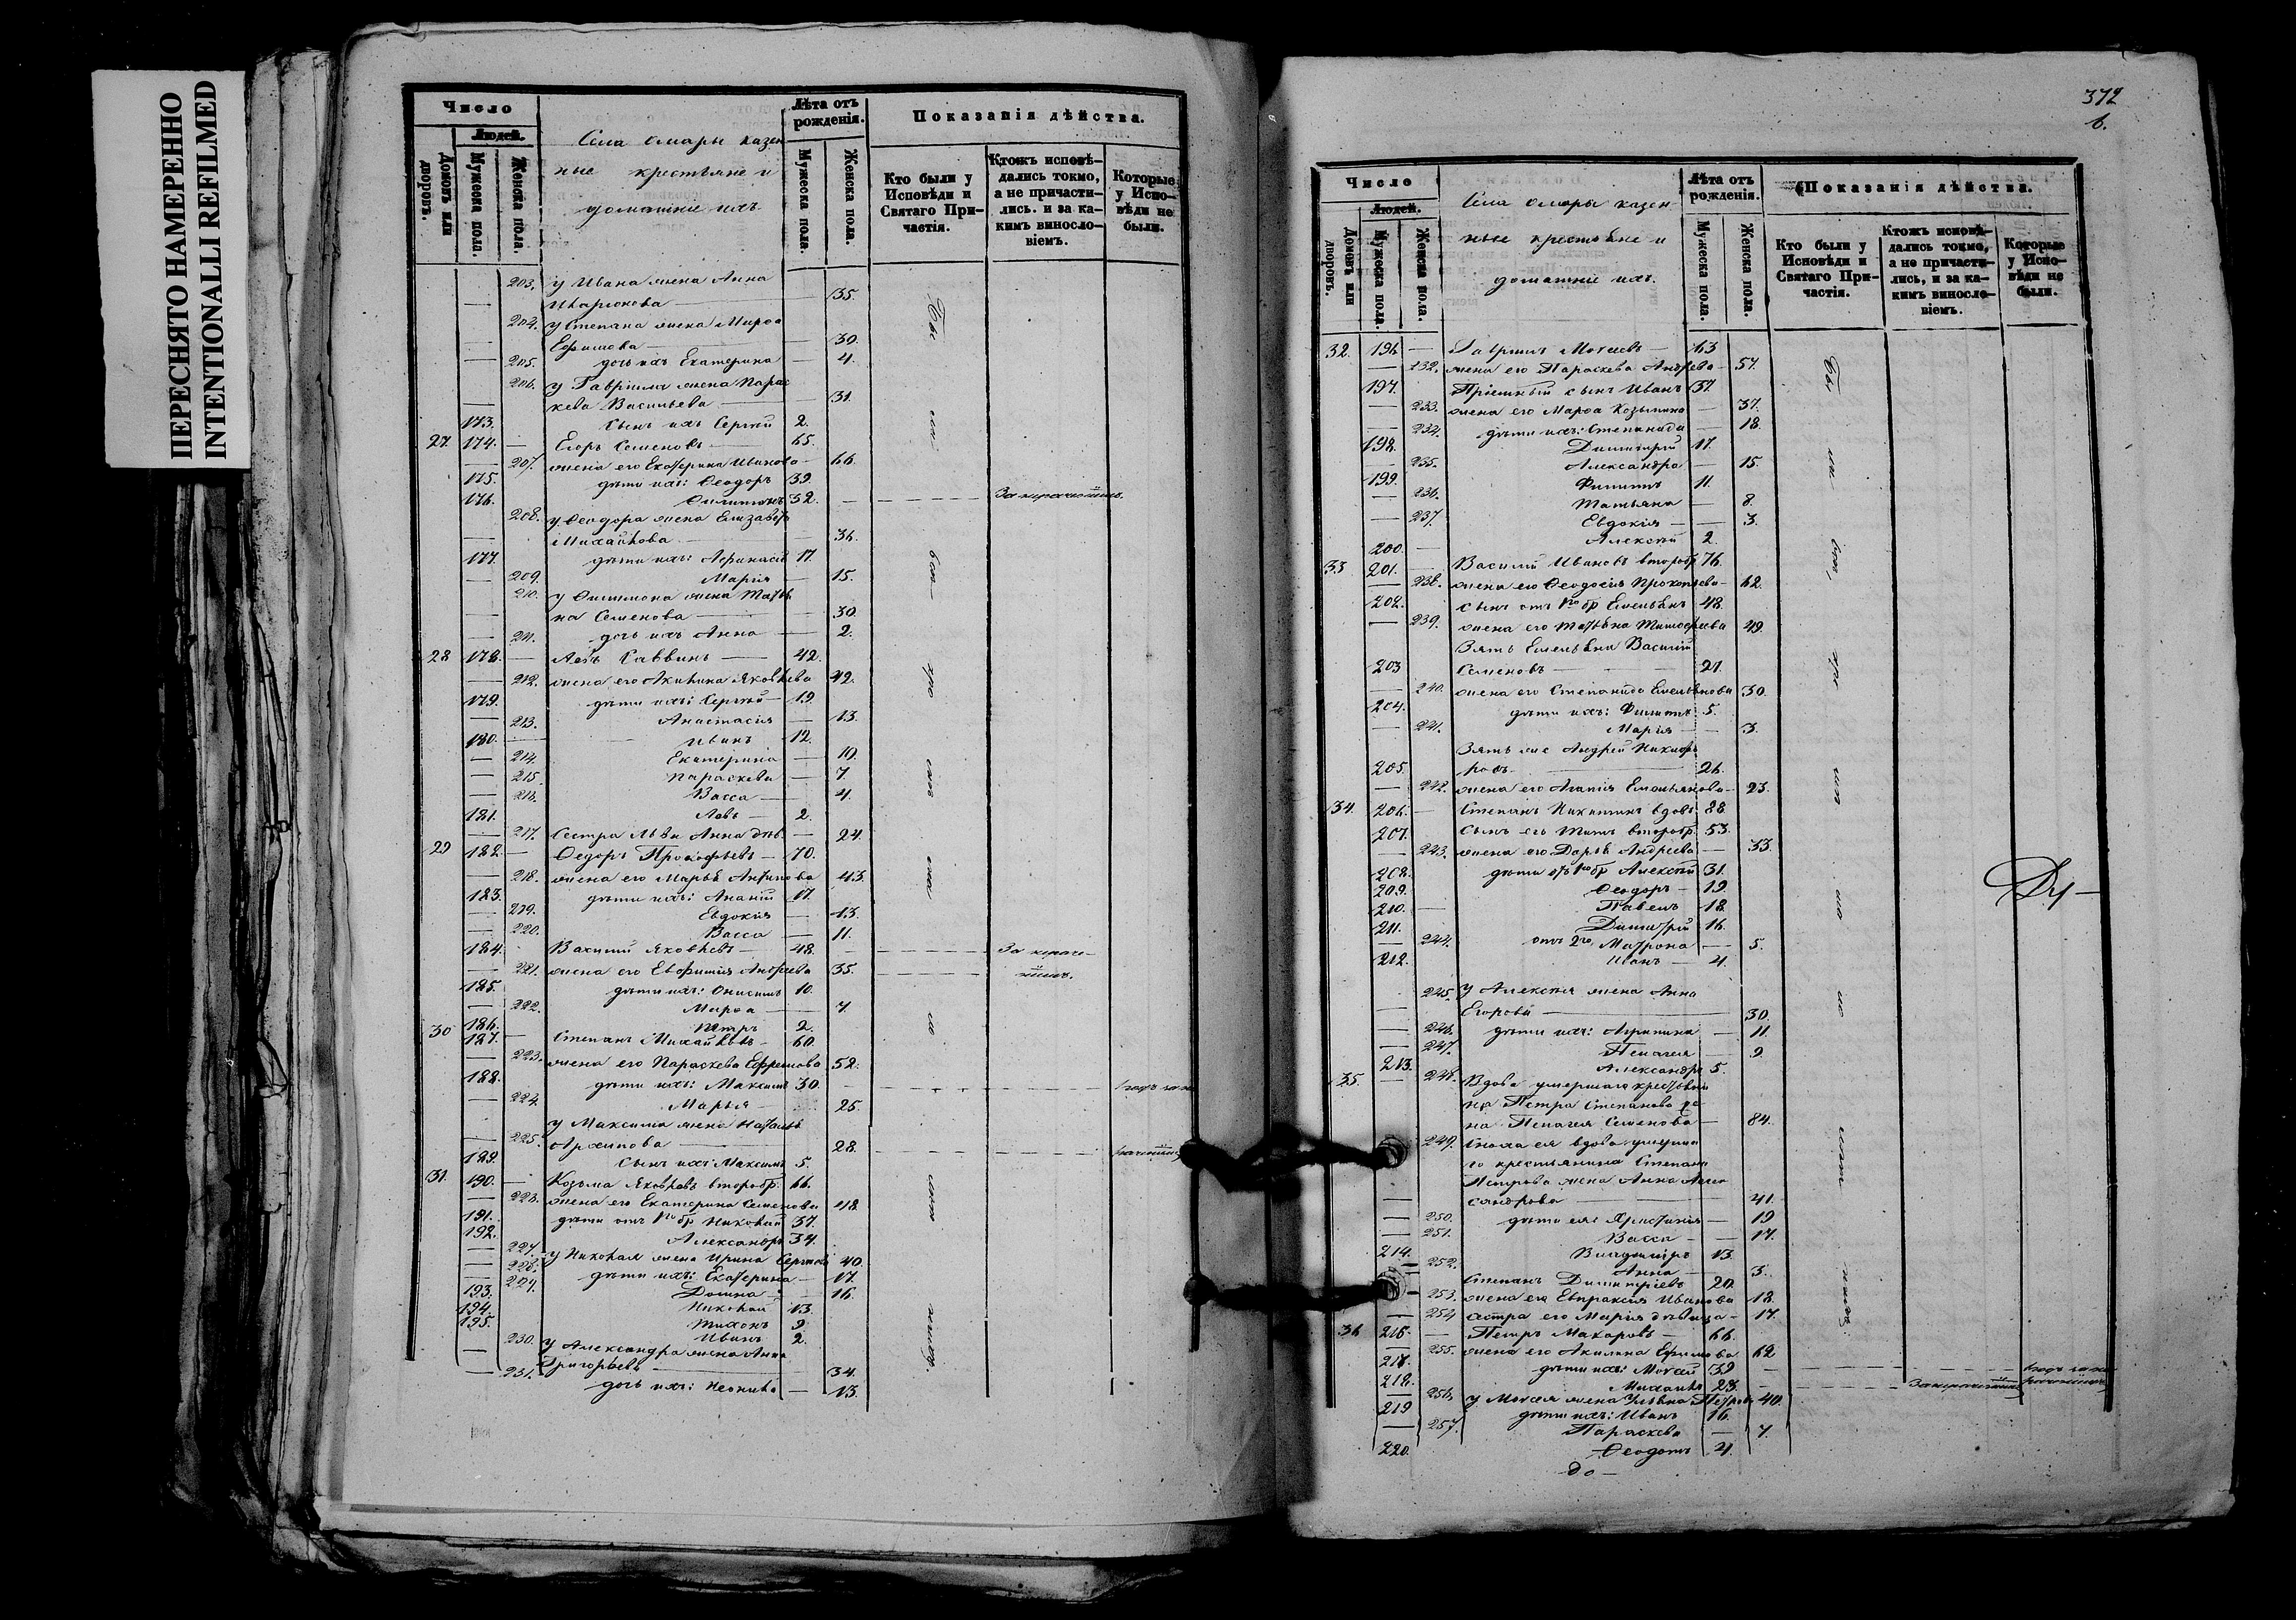 ПЕРЕСНЯТО НАМЕРЕННО
INTENTIONALLI REFILMED
Число
Людей.
Домовъ или дворовъ.
Мужеска пола.
Женска пола.
Села Омары казен
ные крестьяне и
домашніе ихъ.
Лѣта отъ рожденія.
Мужеска пола.
Женска пола.
Показанія дѣйства.
Кто были у Исповѣди и Святаго Причастія.
Ктожъ исповѣдались токмо, а не причастились, и за какимъ винословіемъ.
Которые у Исповѣди не были.
203. у Ивана жена Анна
Иларіонова — 35.
204. у Степана жена Марѳа
Ефимова — 30.
205. дочь ихъ Екатерина — 4.
206. у Гавріила жена Парас
кева Васильева — 31.
173. сынъ ихъ Сергѣй 2.
27. 174. — Егоръ Семеновъ — 65.
207. жена его Екатерина Иванова — 66.
175. дѣти ихъ: Ѳеодоръ 39.
176. Филимонъ 32.
208. у Ѳеодора жена Елизавета
Михайлова — 36.
177. дѣти ихъ: Аѳанасій 17.
209. Марія — 15.
210. у Филимона жена Татья
на Семенова — 30.
211. дочь ихъ Анна — 2.
28 178. — Левъ Саввинъ — 42.
212. жена его Акилина Яковлева 42.
179. дѣти ихъ: Сергѣй — 19.
213. Анастасія — 13.
180. Иванъ 12.
214. Екатерина — 10.
215. Параскева — 7.
216. Васса — 4.
181. Левъ — 2.
217. Сестра Льва Анна дѣв. — 24.
29 182. — Ѳедоръ Прокофьевъ — 70.
218. жена его Марья Антипова 43.
183. дѣти ихъ: Ананій 17.
219. Евдокія — 13.
220. Васса — 11.
184. Василій Яковлевъ — 48.
221. жена его Евфимія Андреева 35.
185. дѣти ихъ: Онисимъ 10.
222. Марѳа — 7.
186. Петръ 2.
30 187. — Степанъ Михайловъ — 60.
223. жена его Параскева Ефремова 52.
188. дѣти ихъ: Максимъ 30.
224. Марья — 25.
у Максима жена Наталья
225. Архипова — 28.
189. сынъ ихъ Максимъ 5.
31. 190. — Козьма Яковлевъ второбр. 66.
226. жена его Екатерина Семенова 48.
191. дѣти отъ 1го бр Николай 37.
192. Александръ 34.
227. у Николая жена Ирина Сергѣева 40.
228. дѣти ихъ: Екатерина — 17.
229. Домна — 16.
193. Николай 13.
194. Тихонъ 9.
195. Иванъ 2.
230. у Александра жена Анна
Григорьева — 34.
231. дочь ихъ: Неонила — 13.
372
6.
Число
Людей.
Домовъ или дворовъ.
Мужеска пола.
Женска пола.
Села Омары казен-
ные крестьяне и
домашніе ихъ.
Лѣта отъ рожденія.
Мужеска пола.
Женска пола.
Показанія дѣйства.
Кто были у Исповѣди и Святаго Причастія.
Ктожъ исповѣдались токмо, а не причастились, и за какимъ винословіемъ.
Которые у Исповѣди не были.
32. 196. — Гавріилъ Моисеевъ — 63
232. жена его Параскева Андреева — 57.
197. Пріемный сынъ Иванъ 37.
233. жена его Марѳа Козьмина — 37.
234. дѣти ихъ: Степанида — 18.
198. Димитрій 17.
235. Александра — 15.
199. Филиппъ 11.
236. Татьяна — 8.
237. Евдокія — 3.
200. Алексѣй 2.
33 201. — Василій Ивановъ второбр 76.
238. жена его Ѳеодосія Прокопьева — 62.
202. сынъ отъ 1го бр Емельянъ 48.
239. жена его Татьяна Тимоѳеева 49.
Зять Емельяна Василій
203 Семеновъ — 21.
240. жена его Степанида Емельянова 30.
204. дѣти ихъ: Филиппъ 5.
241. Марія — 3.
Зять же Андрей Никифо
205. ровъ — 26.
242. жена его Агапія Емельянова — 23.
34. 206. — Степанъ Никитинъ вдовъ 88.
207. Сынъ его Титъ второбр. 53.
243. жена его Дарья Андреева — 53.
208. дѣти отъ 1го бр Алексѣй 31.
209. Ѳеодоръ — 19.
210. Павелъ — 18.
211. Димитрій 16.
244. отъ 2го Матрона — 5.
212. Иванъ — 4.
245. у Алексѣя жена Анна
Егорова — 30.
246. дѣти ихъ: Агрипина — 11.
247. Пелагея — 9.
213. Александръ 5.
35. 248. Вдова умершаго крестьяни
на Петра Степанова же
на Пелагея Семенова — 84.
249. Сноха ея вдова умерша
го крестьянина Степана
Петрова жена Анна Алек
сандрова — 41.
250. дѣти ея: Христинія — 19
251. Васса — 17.
214. Владиміръ 13.
252. Анна — 3.
Степанъ Димитріевъ 20.
253. жена его Евпраксія Иванова 18.
254 сестра его Марія дѣвица — 17.
36 216. — Петръ Макаровъ — 66.
255. жена его Акилина Ефимова 62
217. дѣти ихъ: Моисей 39
218. Михаилъ 23.
256. у Моисея жена Ульяна Петрова 40.
219 дѣти ихъ: Иванъ 16.
257. Параскева — 7.
220. Ѳеодотъ 4.